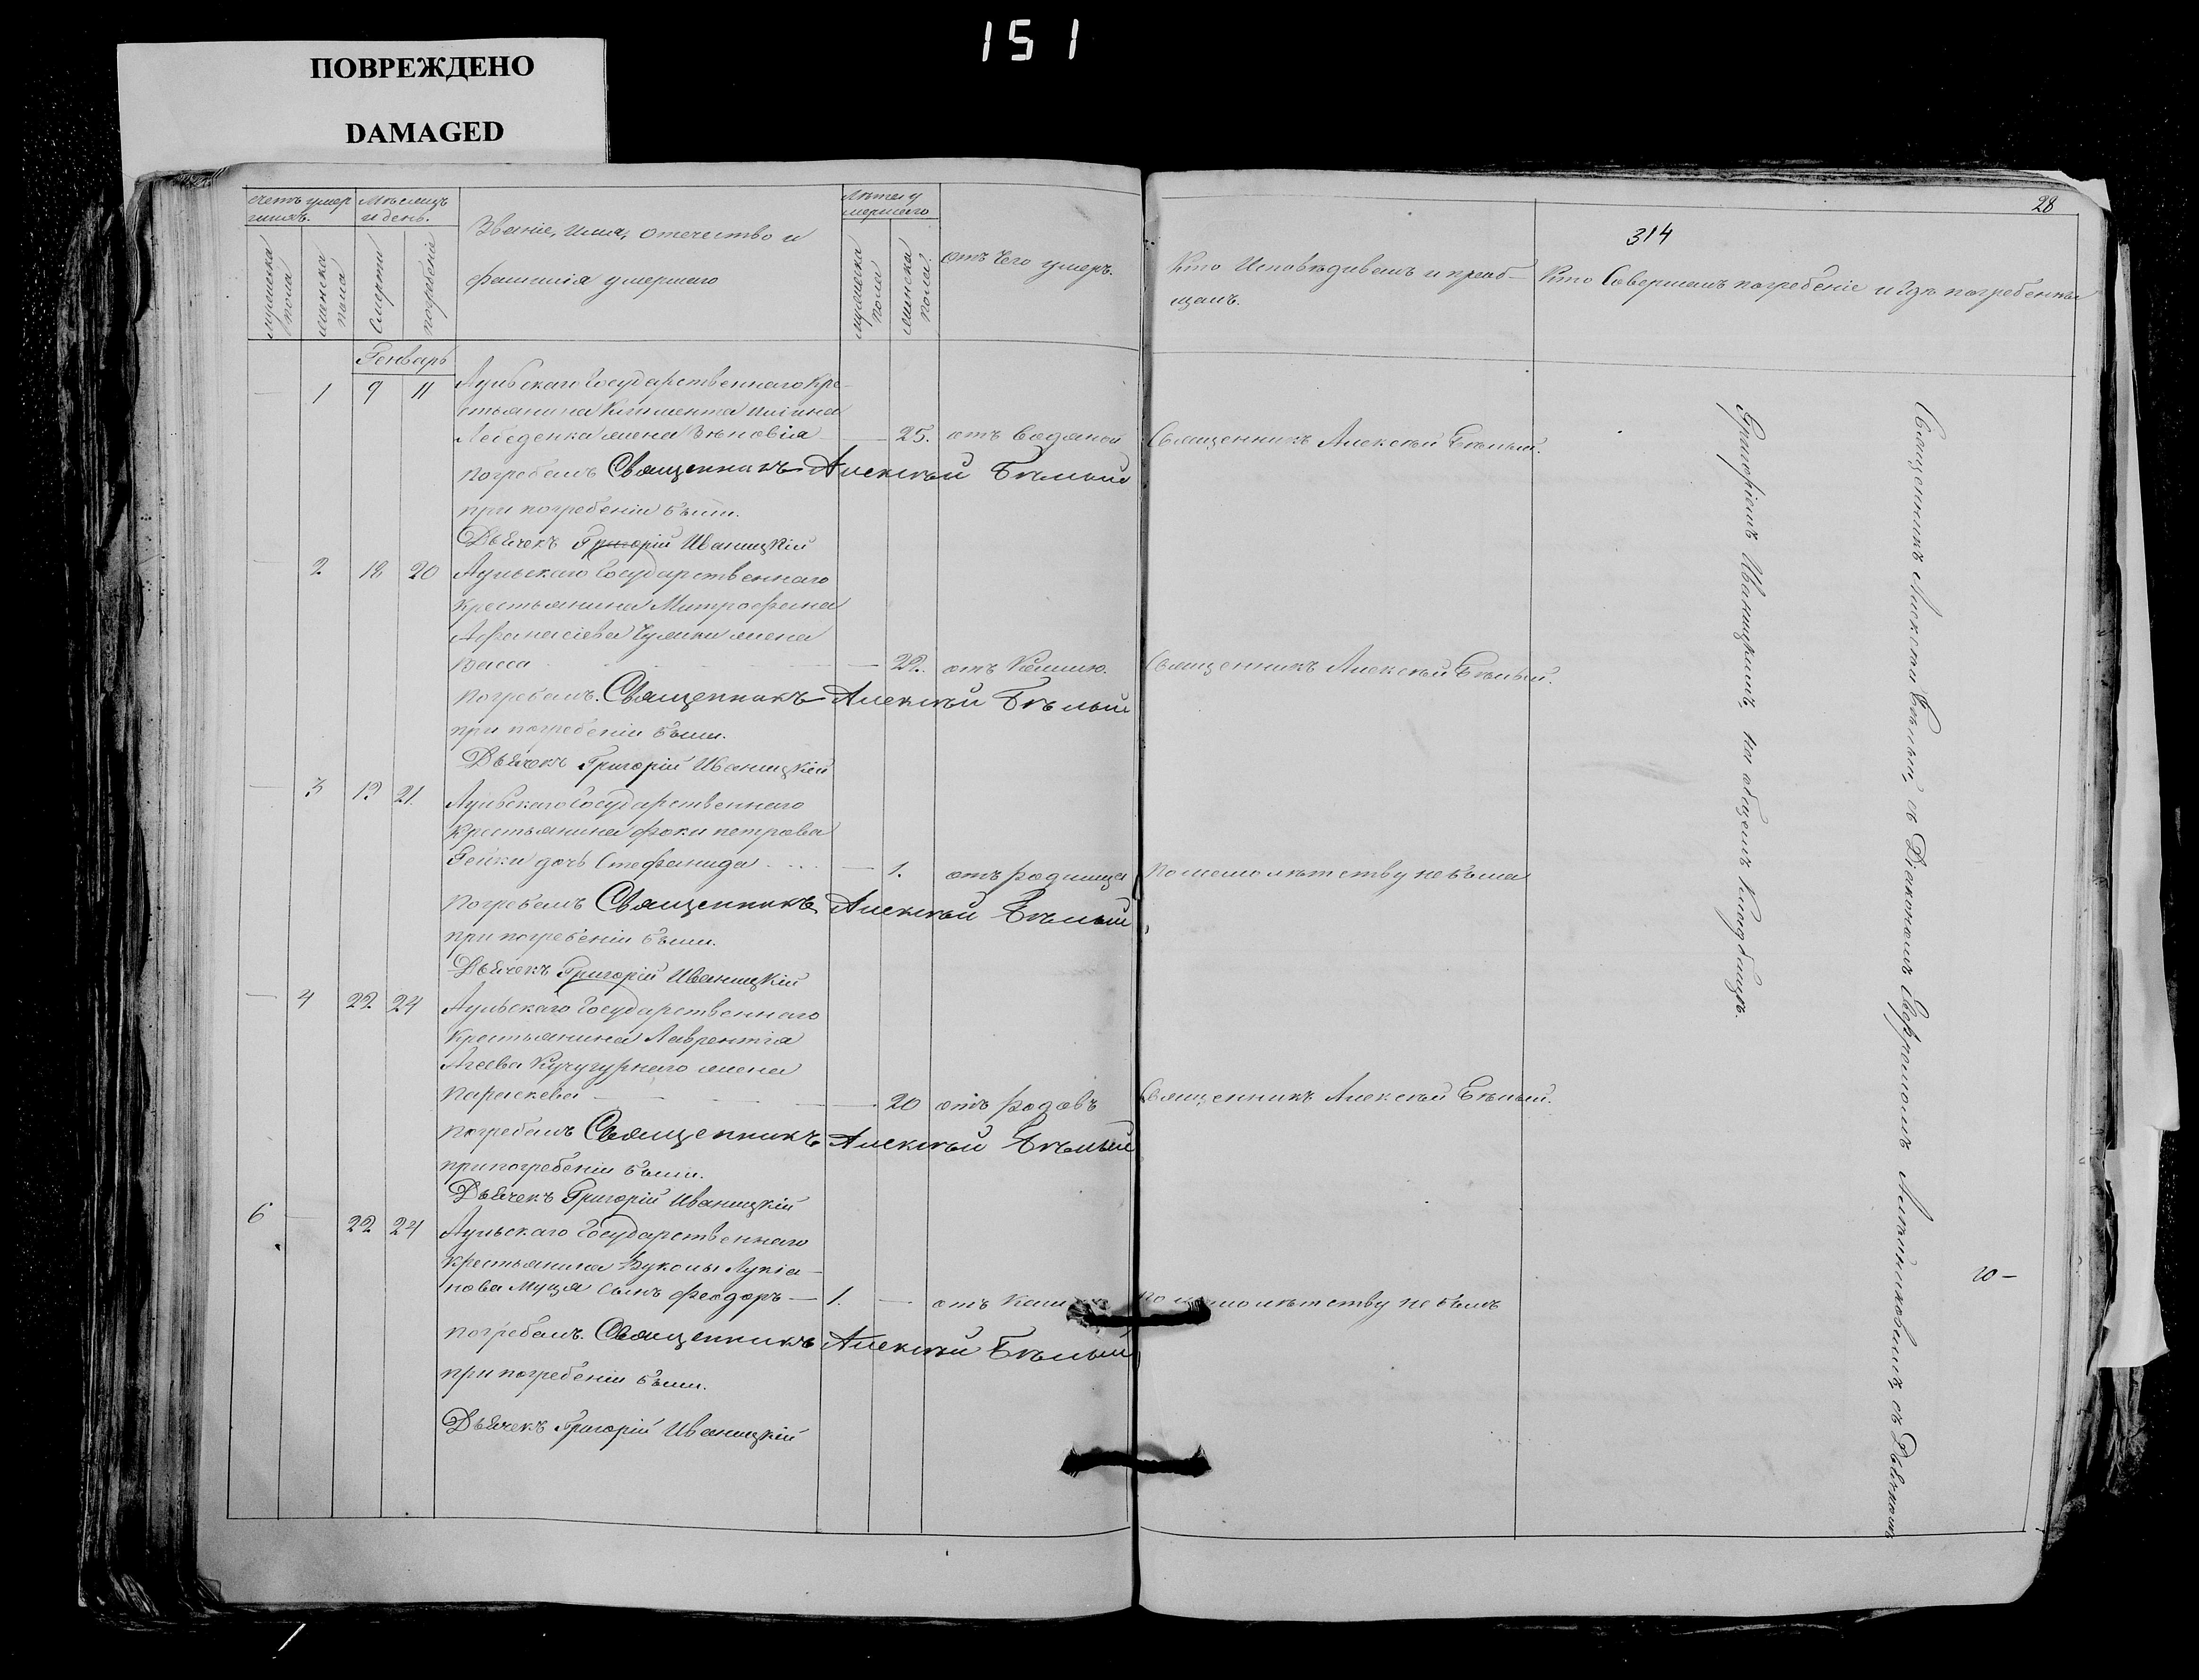 151
ПОВРЕЖДЕНО
DAMAGED
28
314
Счетъ умер
шихъ.
Мѣсяцъ
и день.
Званіе, имя, отечество и
фамилія умершаго
Лѣта у
мершаго
мужеска
пола
женска
пола
Смерти
погребенія
мужеска
пола
женска
пола.
отъ чего умеръ.
Кто Исповѣдывалъ и пріоб-
щалъ.
Кто Совершалъ погребеніе и гдѣ погребены
Генварь
1 9 11 Аульскаго Государственнаго Кре-
стьянина Климента Иліина
Лебеденка жена Зѣновія — 25. отъ водяной Священникъ Алексѣй Бѣлый.
погребалъ Священникъ Алексѣй Бѣлый
при погребеніи были.
Дьячекъ Григорій Иваницкій
2 18 20 Аульскаго Государственнаго
крестьянина Митрофана
Афанасіева Чумаки жена
Васса — 22. отъ Кашлю. Священникъ Алексѣй Бѣлый.
погребалъ. Священникъ Алексѣй Бѣлый
при погребеніи были.
Дьячекъ Григорій Иваницкій
3 19 21 Аульскаго Государственнаго
крестьянина Фоки петрова
Гейки дочь Стефанида — 1. отъ родимца по малолѣтству не была
погребалъ Священникъ Алексѣй Бѣлый
при погребеніи были.
Дьячекъ Григорій Иваницкій
4 22 24 Аульскаго Государственнаго
крестьянина Лаврентія
Агеева Кучугурнаго жена
параскева — 20 отъ родовъ Священникъ Алексѣй Бѣлый.
погребалъ Священникъ Алексѣй Бѣлый
при погребеніи были.
Дьячекъ Григорій Иваницкій
6 — 22 24 Аульскаго Государственнаго
крестьянина Вуколы Лукіа-
нова Муця сынъ Феодоръ — 1. — отъ по малолѣтству не былъ
погребалъ. Священникъ Алексѣй Бѣлый
при погребеніи были.
Дьячекъ Григорій Иваницкій
Священникъ Алексѣй Бѣлый, съ Діакономъ съ Дьячкомъ
Григоріемъ Иваницкимъ, на общемъ кладбищѣ.